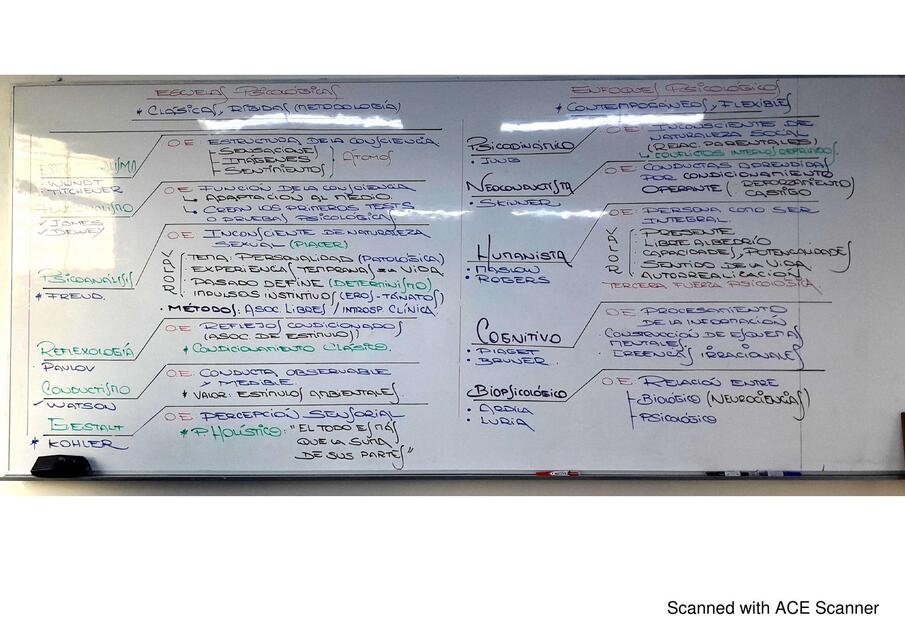 ESCUELAS PSICOLÓGICAS
* CLÁSICAS, RÍGIDAS (METODOLOGÍA)
WUNDT
TITCHENER
O.E: ESTRUCTURA DE LA CONSCIENCIA
SENSACIONES
IMÁGENES
SENTIMIENTOS
ÁTOMOS
JAMES
DEWEY
O.E: FUNCIÓN DE LA CONSCIENCIA
ADAPTACIÓN AL MEDIO
CREAN LOS PRIMEROS TESTS
O PRUEBAS PSICOLÓGICAS
PSICOANÁLISIS
* FREUD.
O.E: INCONSCIENTE DE NATURALEZA
SEXUAL (PLACER)
VALOR
TEMA: PERSONALIDAD (PATOLÓGICA)
EXPERIENCIAS TEMPRANAS VIDA.
PASADO DEFINE (DETERMINISMO)
IMPULSOS INSTINTIVOS (EROS-TÁNATOS)
• MÉTODOS: ASOC. LIBRES / INTROSP. CLÍNICA.
REFLEXOLOGÍA
• PAVLOV
O.E: REFLEJOS CONDICIONADOS
(ASOC. DE ESTÍMULOS)
* CONDICIONAMIENTO CLÁSICO.
CONDUCTISMO
WATSON
O.E: CONDUCTA OBSERVABLE
Y MEDIBLE.
* VALOR: ESTÍMULOS AMBIENTALES
GESTALT
* KOHLER
O.E: PERCEPCIÓN SENSORIAL
* P. HOLÍSTICO: "EL TODO ES MÁS
QUE LA SUMA
DE SUS PARTES"
ENFOQUES PSICOLÓGICOS
* CONTEMPORÁNEOS, FLEXIBLES
PSICODINÁMICO
• JUNG
O.E: INCONSCIENTE DE
NATURALEZA SOCIAL
(RELAC. PARENTALES)
CONFLICTOS INTERNOS
NEOCONDUCTISTA
• SKINNER
O.E: CONDUCTAS APRENDIDAS
POR CONDICIONAMIENTO
OPERANTE (REFORZAMIENTO)
CASTIGO
HUMANISTA
• MASLOW
• ROGERS
O.E: PERSONA COMO SER
INTEGRAL
VALOR
PRESENTE
LIBRE ALBEDRÍO
CAPACIDADES, POTENCIALIDADES
SENTIDO DE LA VIDA
AUTORREALIZACIÓN
TERCERA FUERZA PSICOLÓGICA.
COGNITIVO
• PIAGET
• BRUNER
O.E: PROCESAMIENTO
DE LA INFORMACIÓN
CONSTRUCCIÓN DE ESQUEMAS
MENTALES.
CREENCIAS IRRACIONALES
BIOPSICOLÓGICO
• ARDILA
• LURIA
O.E: RELACIÓN ENTRE
BIOLÓGICO (NEUROCIENCIAS)
PSICOLÓGICO
Scanned with ACE Scanner